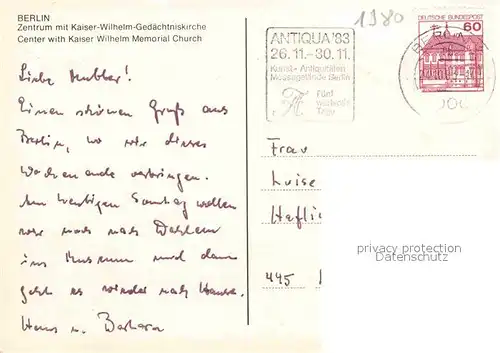 BERLIN
Zentrum mit Kaiser-Wilhelm-Gedächtniskirche
Center with Kaiser Wilhelm Memorial Church
1980
ANTIQUA'83
26.11.-30.11.
Kunst- Antiquitäten
Messegelände Berlin
Fünf
wertvolle
Tage
DEUTSCHE BUNDESPOST
60
BERLIN
Liebe Mutter!
Einen schönen Gruß aus
Berlin, wo wir dieses
Wochenende verbringen.
Am heutigen Sonntag wollen
wir noch nach Dahlem
ins Museum und dann
geht es wieder nach Hause.
Hans u. Barbara
Frau
Luise
Haflic
445
privacy protection
Datenschutz